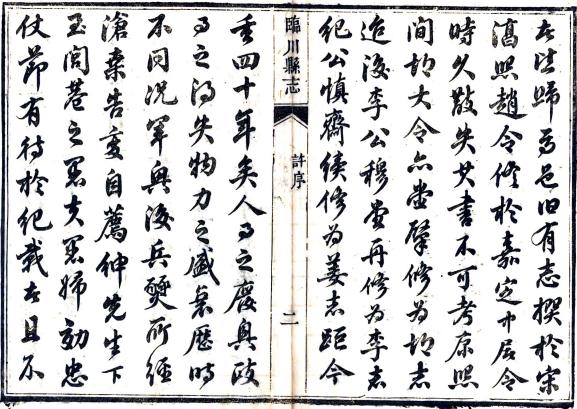 者歸焉邑旧有志撰於宋
淳熙趙令修於嘉定
時久散失其書不可考康熙
間胡大令亦堂肇修为胡志
迨後李公穆堂再修为李志
紀公慎齋續修为姜志距今
臨川縣志
許序
二
垂四十年矣人事之廢興政
事之得失物力之盛衰歷時
不同況軍興後兵燹所經
滄桑告變自薦紳先生下
至閭巷之愚夫愚婦効忠
仗節有待於紀載者且不